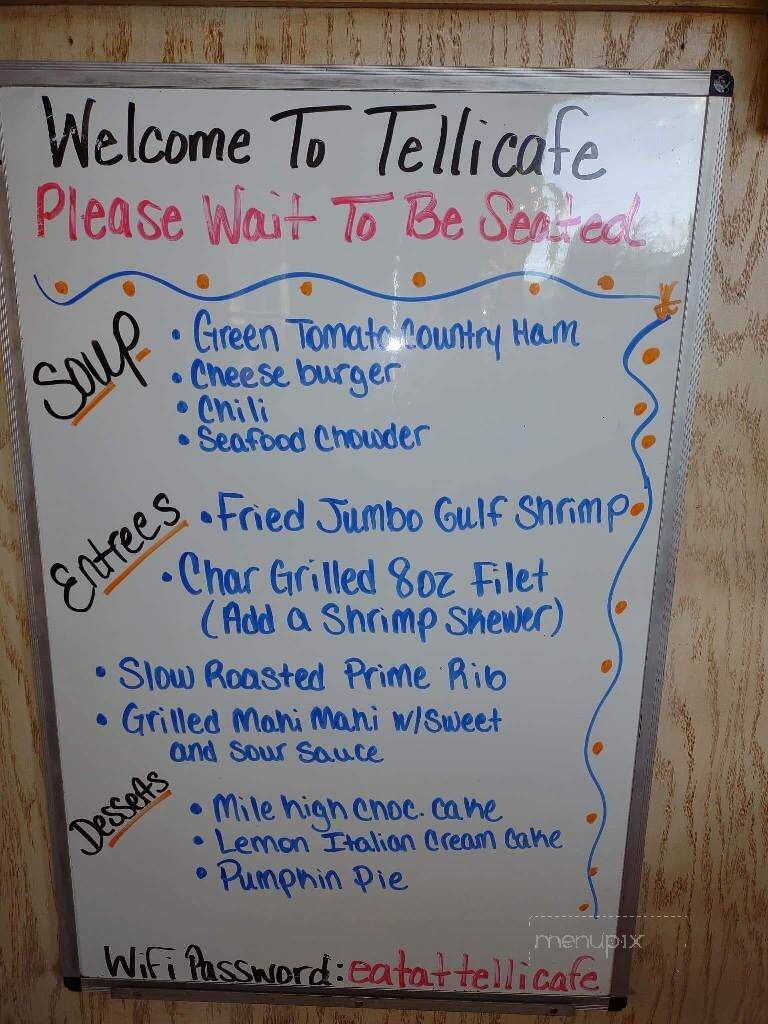 Welcome To Tellicafe
Please Wait To Be Seated
Soup
• Green Tomato Country Ham
• Cheese burger
• Chili
• Seafood Chowder
Entrees
• Fried Jumbo Gulf Shrimp
• Char Grilled 8oz Filet
(Add a Shrimp Skewer)
• Slow Roasted Prime Rib
• Grilled Mahi Mahi w/Sweet
and Sour Sauce
Desserts
• Mile high choc. cake
• Lemon Italian Cream Cake
• Pumpkin Pie
menupix
WiFi Password: eatattellicafe